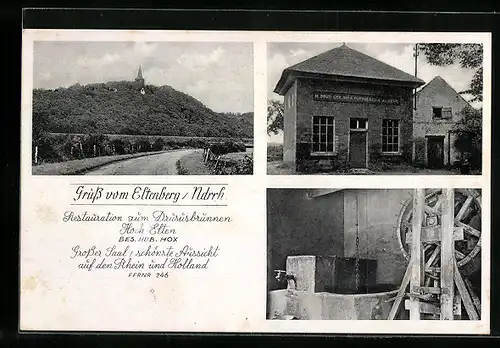 Gruß vom Eltenberg / Ndrrh.
Restauration zum Drususbrunnen
Hoch Elten
BES. HUB. HOX
Großer Saal, schönste Aussicht
auf den Rhein und Holland
FERNR 246